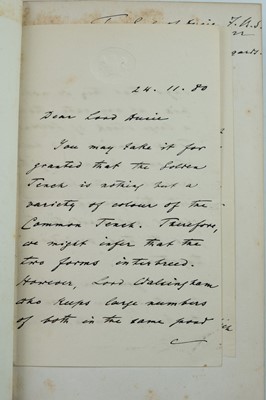 F.R.S.
24.11.80
Dear Lord
You may take it for
granted that the Golden
Tench is nothing but a
variety of colour of the
Common Tench. Therefore,
we might infer that the
two forms interbreed.
However, Lord Walsingham
who keeps large numbers
of both in the same pond